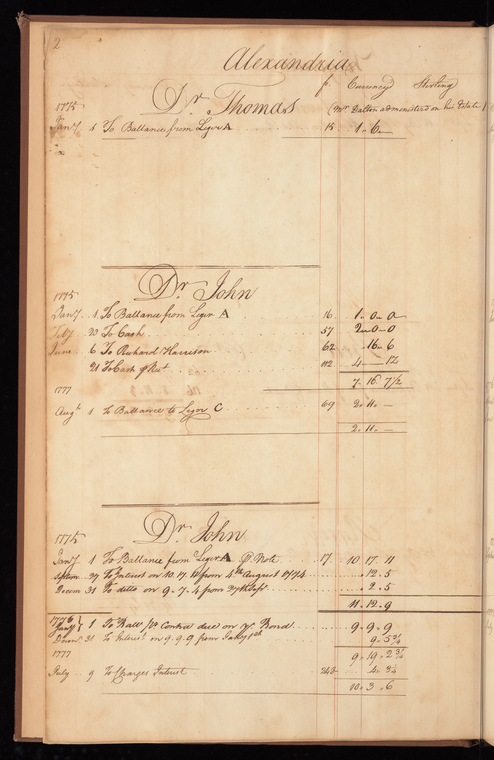 2
Alexandria
f Currency Sterling
1775 Dr. Thomas (Mr. Dalton administered on his Estate)
Jany 1 To Ballance from Leger A 15 1 " 6 " —
1775 Dr. John
Jany 1 To Ballance from Leger A 16 1 " 0 " 0
20 To Cash 57 2 " 0 " 0
June 6 To Richard Harrison 62 " 16 " 6
21 To Cash 112 4 " — 1½
7 " 16 " 7½
1777
Augt 1 To Ballance to Leger C 69 2 " 11 " —
2 " 11 " —
1775 Dr. John
Jany 1 To Ballance from Leger A Note 17 10 " 17 " 11
27 To Interest on 10.17.11 from 4th August 1774 " 12 " 5
Decem 31 To ditto on 9.7.4 from 27th " 2 " 5
11 " 12 " 9
1776
Jany 1 To Ball. Contra due on Bond 9 " 9 " 9
31 To Interest on 9.9.9 from Jany 1st 9 " 5¾
1777 9 " 19 " 2¾
July 9 To Charges Interest 243 4 " 3¼
10 " 3 " 6